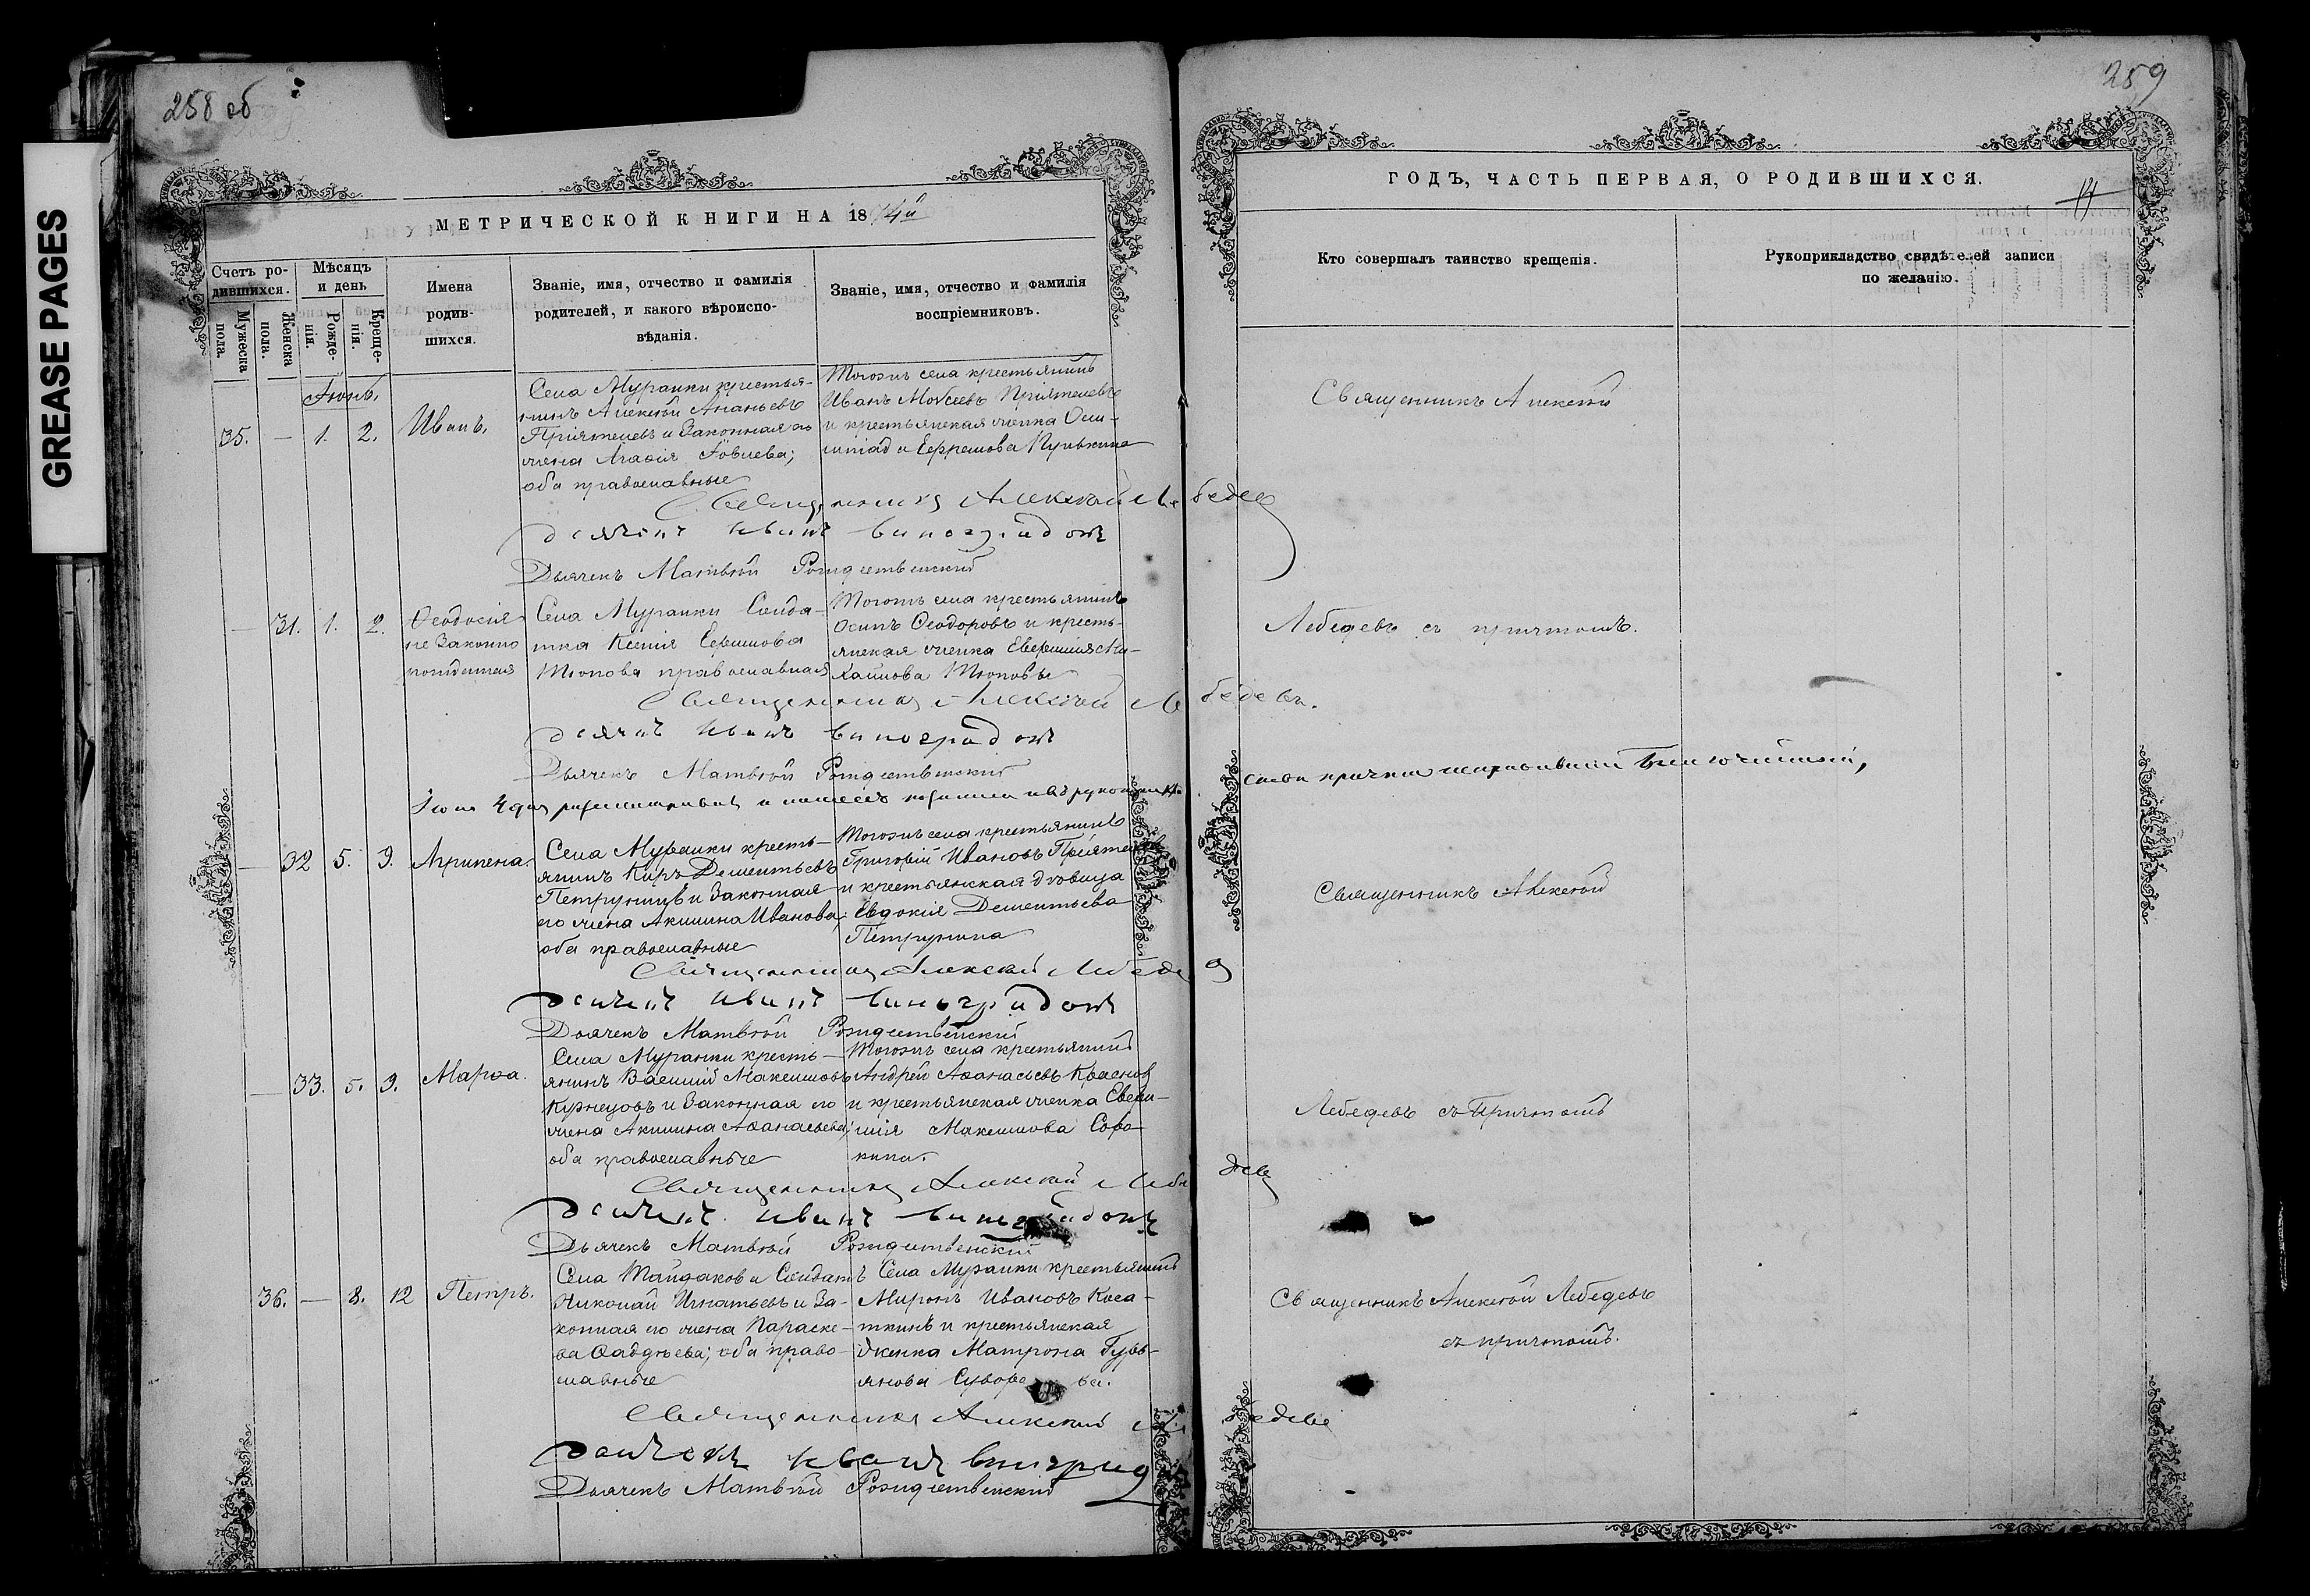 GREASE PAGES
258 об
МЕТРИЧЕСКОЙ КНИГИ НА 1874й
Счетъ ро-
дившихся.
Мужеска
пола.
Женска
пола.
Мѣсяцъ
и день
Рожде-
нія.
Креще-
нія.
Имена
родив-
шихся.
Званіе, имя, отчество и фамилія
родителей, и какого вѣроиспо-
вѣданія.
Званіе, имя, отчество и фамилія
воспріемниковъ.
Іюнь.
35. — 1. 2. Иванъ.
Села Муранки крестья-
нинъ Алексѣй Ананьевъ
Пріятелевъ и законная его
жена Агаѳія Іовлева;
оба православные
Тогожъ села крестьянинъ
Иванъ Моѵсеевъ Пріятелевъ
и крестьянская женка Оли-
мпіад а Ефремова
Священникъ Алексѣй Лебедев
дьячекъ Иванъ Виноградовъ
Дьячекъ Матвѣй Рождественскій
— 31. 1. 2. Ѳеодосія
не законно
рожденная
Села Муранки Солда-
тка Ксенія Ефимова
Тюпова православная
Тогожъ села крестьянинъ
Осипъ Ѳеодоровъ и кресть-
янская женка Евфимія Ми-
хайлова Тюповы
Священникъ Алексѣй Лебедевъ.
дьячекъ Иванъ Виноградовъ
Дьячекъ Матвѣй Рождественскій
— 32 5. 9. Агрипена.
Села Муранки кресть-
янинъ Киръ Дементьевъ
Петрунинъ и законная
его жена Акилина Иванова;
оба православные
Тогожъ села крестьянинъ
Григорій Ивановъ
и крестьянская вдовица
Евдокія Дементьева
Петрунина
Священникъ Алексѣй Лебедев
дьячекъ Иванъ Виноградовъ
Дьячекъ Матвѣй Рождественскій
— 33. 5. 9. Марѳа.
Села Муранки кресть-
янинъ Василій Максимовъ
Кузнецовъ и законная его
жена Акилина Аѳанасьева;
оба православные
Тогожъ села крестьянинъ
Андрей Аѳанасьевъ Краснов
и крестьянская женка Евфи-
мія Максимова Соро-
кина.
Священникъ Алексѣй Лебедев
дьячекъ Иванъ Виноградовъ
Дьячекъ Матвѣй Рождественскій
36. — 8. 12 Петръ.
Села Тайдакова Солдатъ
Николай Игнатьевъ и за-
конная его жена Параске-
ва Ѳаддѣева; оба право-
славные
Села Муранки крестьянинъ
Миронъ Ивановъ Каса-
ткинъ и крестьянская
женка Матрона Гурь-
янова
Священникъ Алексѣй Лебедев
дьячекъ Иванъ
Дьячекъ Матвѣй Рождественскій
259
ГОДЪ, ЧАСТЬ ПЕРВАЯ, О РОДИВШИХСЯ.
Кто совершалъ таинство крещенія.
Рукоприкладство свидѣтелей записи
по желанію.
Священникъ Алексѣй
Лебедевъ съ причтомъ.
Священникъ Алексѣй
Лебедевъ съ причтомъ
Священникъ Алексѣй Лебедевъ
съ причтомъ.